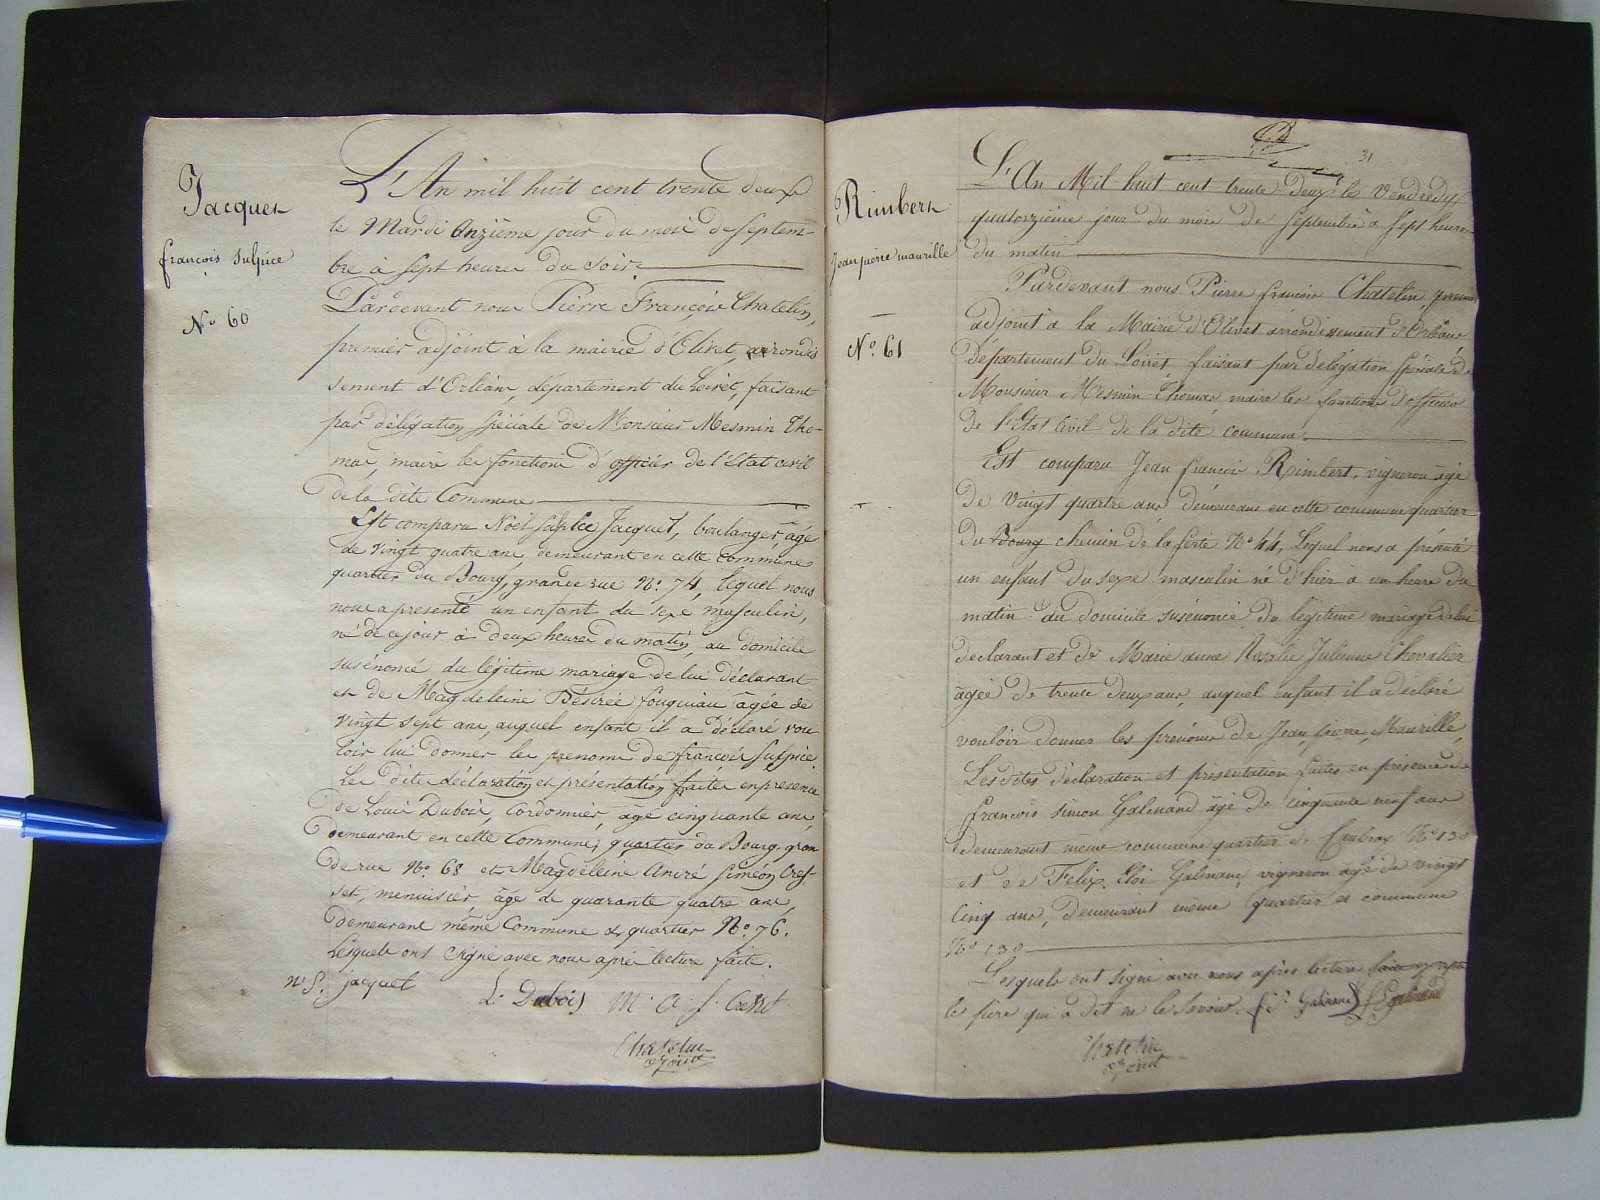 Jacquet
françois Sulpice
N° 60
L'An mil huit cent trente deux
le Mardi Onzième jour du mois de Septem-
bre à sept heures du soir
Pardevant nous Pierre François Chatelin,
premier adjoint à la mairie d'Olivet, arrondis
sement d'Orléans, département du Loiret, faisant
par délégation spéciale de Monsieur Mesmin Tho-
mas, maire les fonctions d'officier de l'Etat civil
de la dite Commune
Est comparu Noël Sulpice Jacquet, boulanger, âgé
de vingt quatre ans, demeurant en cette Commune
quartier du Bourg, grande rue N°. 74, lequel nous
nous a présenté un enfant du sexe masculin,
né de ce jour à deux heures du matin, au domicile
susénoncé du légitime mariage de lui déclarant
et de Magdeleine Désirée fouquiau âgée de
vingt sept ans, auquel enfant il a déclaré vou
loir lui donner les prenoms de françois Sulpice.
Les dite déclaration et présentation faites en presence
de Louis Dubois, Cordonnier, âgé cinquante ans,
demeurant en cette Commune, quartier du Bourg, gran
de rue N°. 68 et Magdeleine André Siméon Cres
set, menuisier, âgé de quarante quatre ans,
demeurant même Commune & quartier N°. 76.
Lesquels ont signé avec nous après lecture faite.
n. S. jacquet
L. Dubois
M. a. S. Cresset
Chatelin
adjoint
31
Rimbert
Jean pierre maurille
N°. 61
L'An Mil huit cent trente Deux le Vendredy
quatorzième jour du mois de Septembre à Sept heures
du matin
Pardevant nous Pierre francois Chatelin premier
adjoint à la Mairie d'Olivet arrondissement d'Orléans
Département du Loiret faisant par délégation Spéciale de
Monsieur Mesmin Thomas maire les fonctions d'officier
de l'Etat Civil de la dite commune.
Est comparu Jean francois Rimbert, vigneron âgé
de vingt quatre ans demeurant en cette commune quartier
du Bourg chemin de la ferté N° 44, Lequel nous a présenté
un enfant du sexe masculin né d'hier à un heure du
matin au domicile susénoncé du légitime mariage de lui
declarant et de Marie anne Rosalie Julienne Chevalier
âgée de trente deux ans, auquel enfant il a déclaré
vouloir donner les prénoms de Jean, pierre, Maurille,
Lesdites déclaration et présentation faites en présence de
francois simon Galinand âgé de cinquante neuf ans
demeurant même commune quartier de N° 130
et de Felix Eloi Galinand, vigneron âgé de vingt
cinq ans, Demeurant même quartier et commune
N° 130
Lesquels ont signé avec nous après lecture
le père qui a dit ne le Savoir. f. S. Galinand f E galinand
Chatelin
adjoint